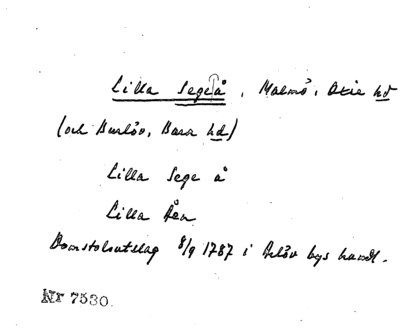 Lilla Sege å, Malmö, Oxie hd
(och Burlöv, Bara hd)
Lilla Sege å
Lilla Åen
Domstolsutslag 8/9 1787 i Arlöv bys handl.
Nr 7530.